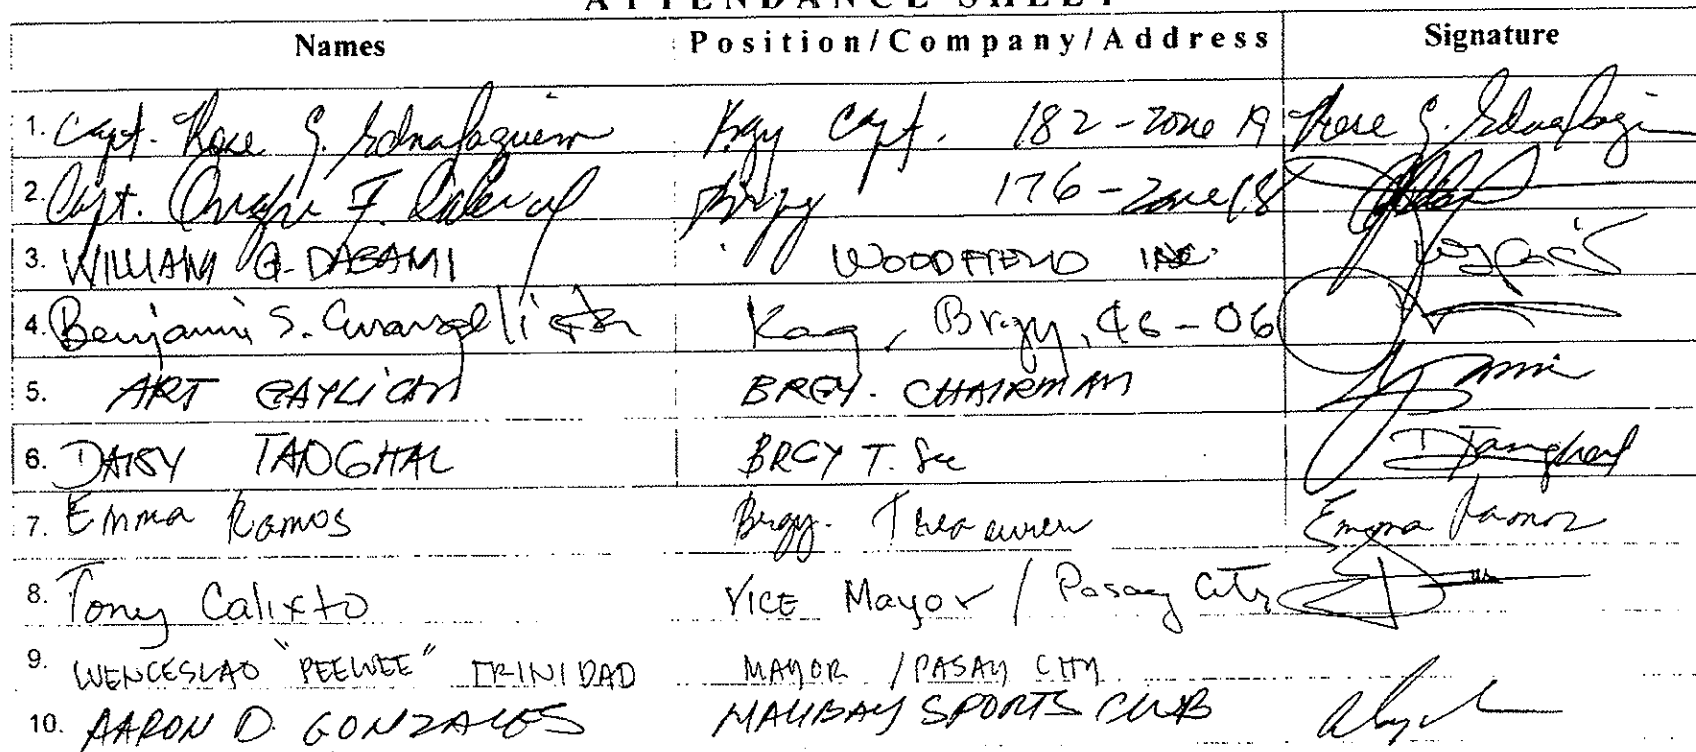 ATTENDANCE SHEET
Names Position/Company/Address Signature
1. Capt. Rose G. Brgy Capt. 182 - Zone 19 Rose G.
2. Capt. F. Brgy 176 - Zone 18
3. WILLIAM G. DABAMI WOODFIELD INC.
4. Benjamin S. Kag, Brgy, 46-06
5. ART BRGY. CHAIRMAN
6. DAISY TANGHAL BRGY T. Sec DTanghal
7. Emma Ramos Brgy. Treasurer Emma Ramos
8. Tony Calixto VICE Mayor / Pasay City
9. WENCESLAO "PEEWEE" TRINIDAD MAYOR / PASAY CITY
10. AARON D. GONZALES MALIBAY SPORTS CLUB